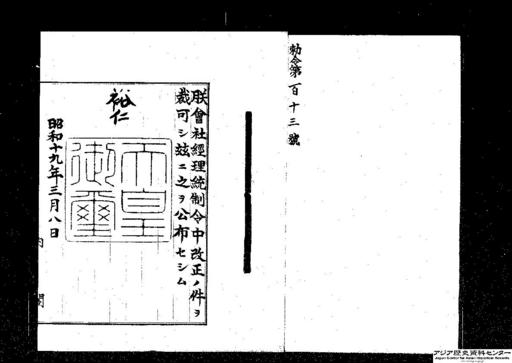 勅令第百十三號
朕會社經理統制令中改正ノ件ヲ
裁可シ玆ニ之ヲ公布セシム
裕仁
天皇
御璽
昭和十九年三月八日
内閣
アジア歴史資料センター
Japan Center for Asian Historical Records